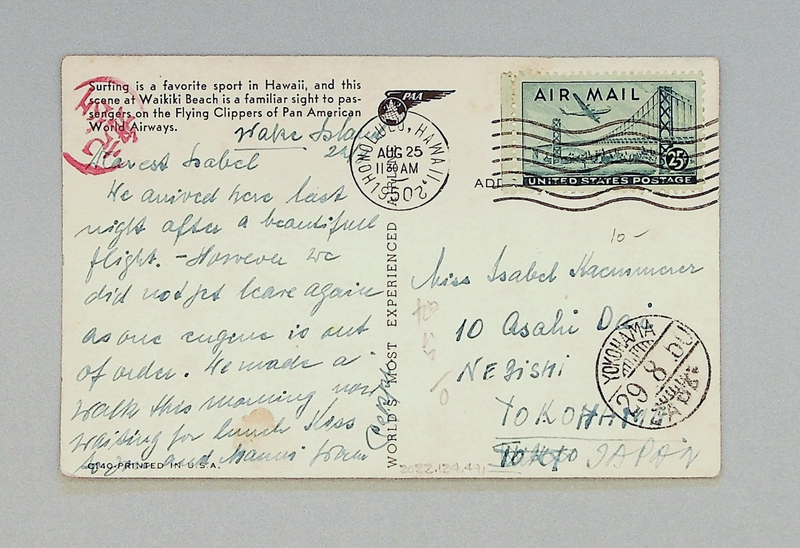 Surfing is a favorite sport in Hawaii, and this
scene at Waikiki Beach is a familiar sight to pas-
sengers on the Flying Clippers of Pan American
World Airways.
Wake Island
Dearest Isabel
We arrived here last
night after a beautifull
flight. - However we
did not yet leave again
as one engine is out
of order. We made a
walk this morning now
waiting for lunch Kiss
and
C140-PRINTED IN U.S.A.
WORLD'S MOST EXPERIENCED AIRLINE
PAA
HONOLULU, HAWAII.
AUG 25
11 30 AM
1950
AIR MAIL
25¢
UNITED STATES POSTAGE
10-
Miss Isabel Kaemmerer
10 Asahi Dai
NEGISHI
YOKOHAMA
Tokyo JAPAN
YOKOHAMA
29.8.50
2022.129.491